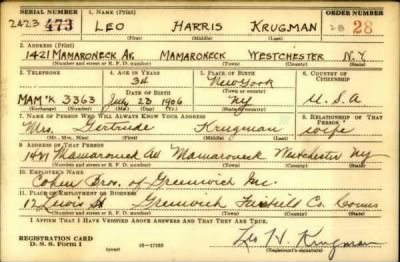 SERIAL NUMBER 1. NAME (Print) ORDER NUMBER
2423 473 LEO HARRIS KRUGMAN 28
(First) (Middle) (Last)
2. ADDRESS (Print)
1421 MAMARONECK AV. MAMARONECK WESTCHESTER N.Y.
(Number and street or R. F. D. number) (Town) (County) (State)
3. TELEPHONE 4. AGE IN YEARS 5. PLACE OF BIRTH 6. COUNTRY OF CITIZENSHIP
34 New York
DATE OF BIRTH (Town or county)
MAM'K 3363 July 23 1906 NY U.S.A
(Exchange) (Number) (Mo.) (Day) (Yr.) (State or country)
7. NAME OF PERSON WHO WILL ALWAYS KNOW YOUR ADDRESS 8. RELATIONSHIP OF THAT PERSON
Mrs. Gertrude Krugman wife
(Mr., Mrs., Miss) (First) (Middle) (Last)
9. ADDRESS OF THAT PERSON
1421 Mamaroneck Av Mamaroneck Westchester NY
(Number and street or R. F. D. number) (Town) (County) (State)
10. EMPLOYER'S NAME
Cohen Bros. of Greenwich Inc.
11. PLACE OF EMPLOYMENT OR BUSINESS
12 Lewis St Greenwich Fairfield Co. Conn
(Number and street or R. F. D. number) (Town) (County) (State)
I AFFIRM THAT I HAVE VERIFIED ABOVE ANSWERS AND THAT THEY ARE TRUE.
REGISTRATION CARD
D. S. S. Form 1 (over) Leo H. Krugman
(Registrant's signature)